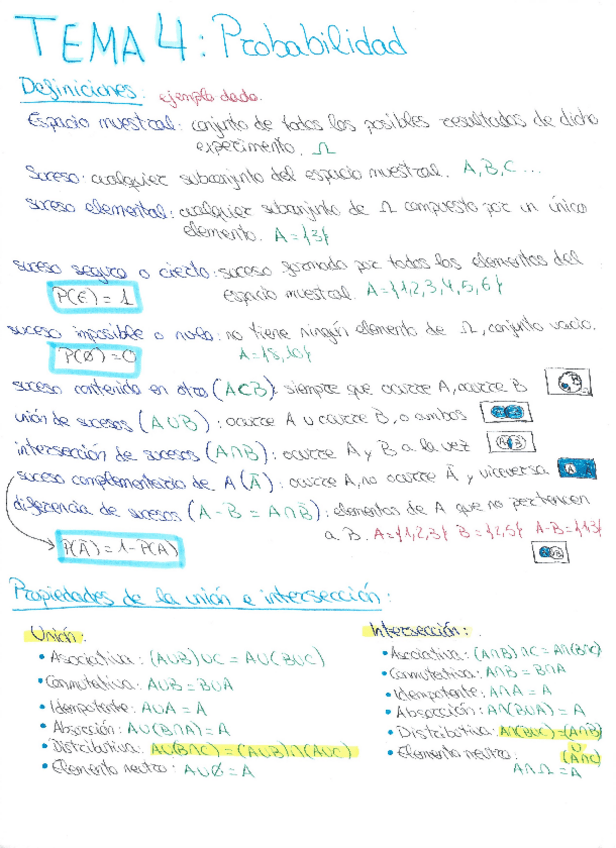 TEMA 4: Probabilidad
Definiciones: ejemplo dado.
Espacio muestral: conjunto de todos los posibles resultados de dicho
experimento. Ω
Suceso: cualquier subconjunto del espacio muestral. A, B, C ...
suceso elemental: cualquier subconjunto de Ω compuesto por un único
elemento. A={3}
suceso seguro o cierto: suceso formado por todos los elementos del
P(E) = 1 espacio muestral. A={1,2,3,4,5,6}
suceso imposible o nulo: no tiene ningún elemento de Ω, conjunto vacío.
P(Ø)=0 A={8,10}
suceso contenido en otro (A⊂B): siempre que ocurre A, ocurre B
unión de sucesos (A∪B): ocurre A u ocurre B, o ambos
intersección de sucesos (A∩B): ocurre A y B a la vez
suceso complementario de A (Ā): ocurre A, no ocurre Ā, y viceversa
diferencia de sucesos (A-B = A∩B̄): elementos de A que no pertenecen
a B. A={1,2,3} B={2,5} A-B={1,3}
P(Ā) = 1-P(A)
Propiedades de la unión e intersección:
Unión:
• Asociativa: (A∪B)∪C = A∪(B∪C)
• Conmutativa: A∪B = B∪A
• Idempotente: A∪A = A
• Absorción: A∪(B∩A) = A
• Distributiva: A∪(B∩C) = (A∪B)∩(A∪C)
• Elemento neutro: A∪Ø = A
Intersección:
• Asociativa: (A∩B)∩C = A∩(B∩C)
• Conmutativa: A∩B = B∩A
• Idempotente: A∩A = A
• Absorción: A∩(B∪A) = A
• Distributiva: A∩(B∪C) = (A∩B)
∪
• Elemento neutro: (A∩C)
A∩Ω = A